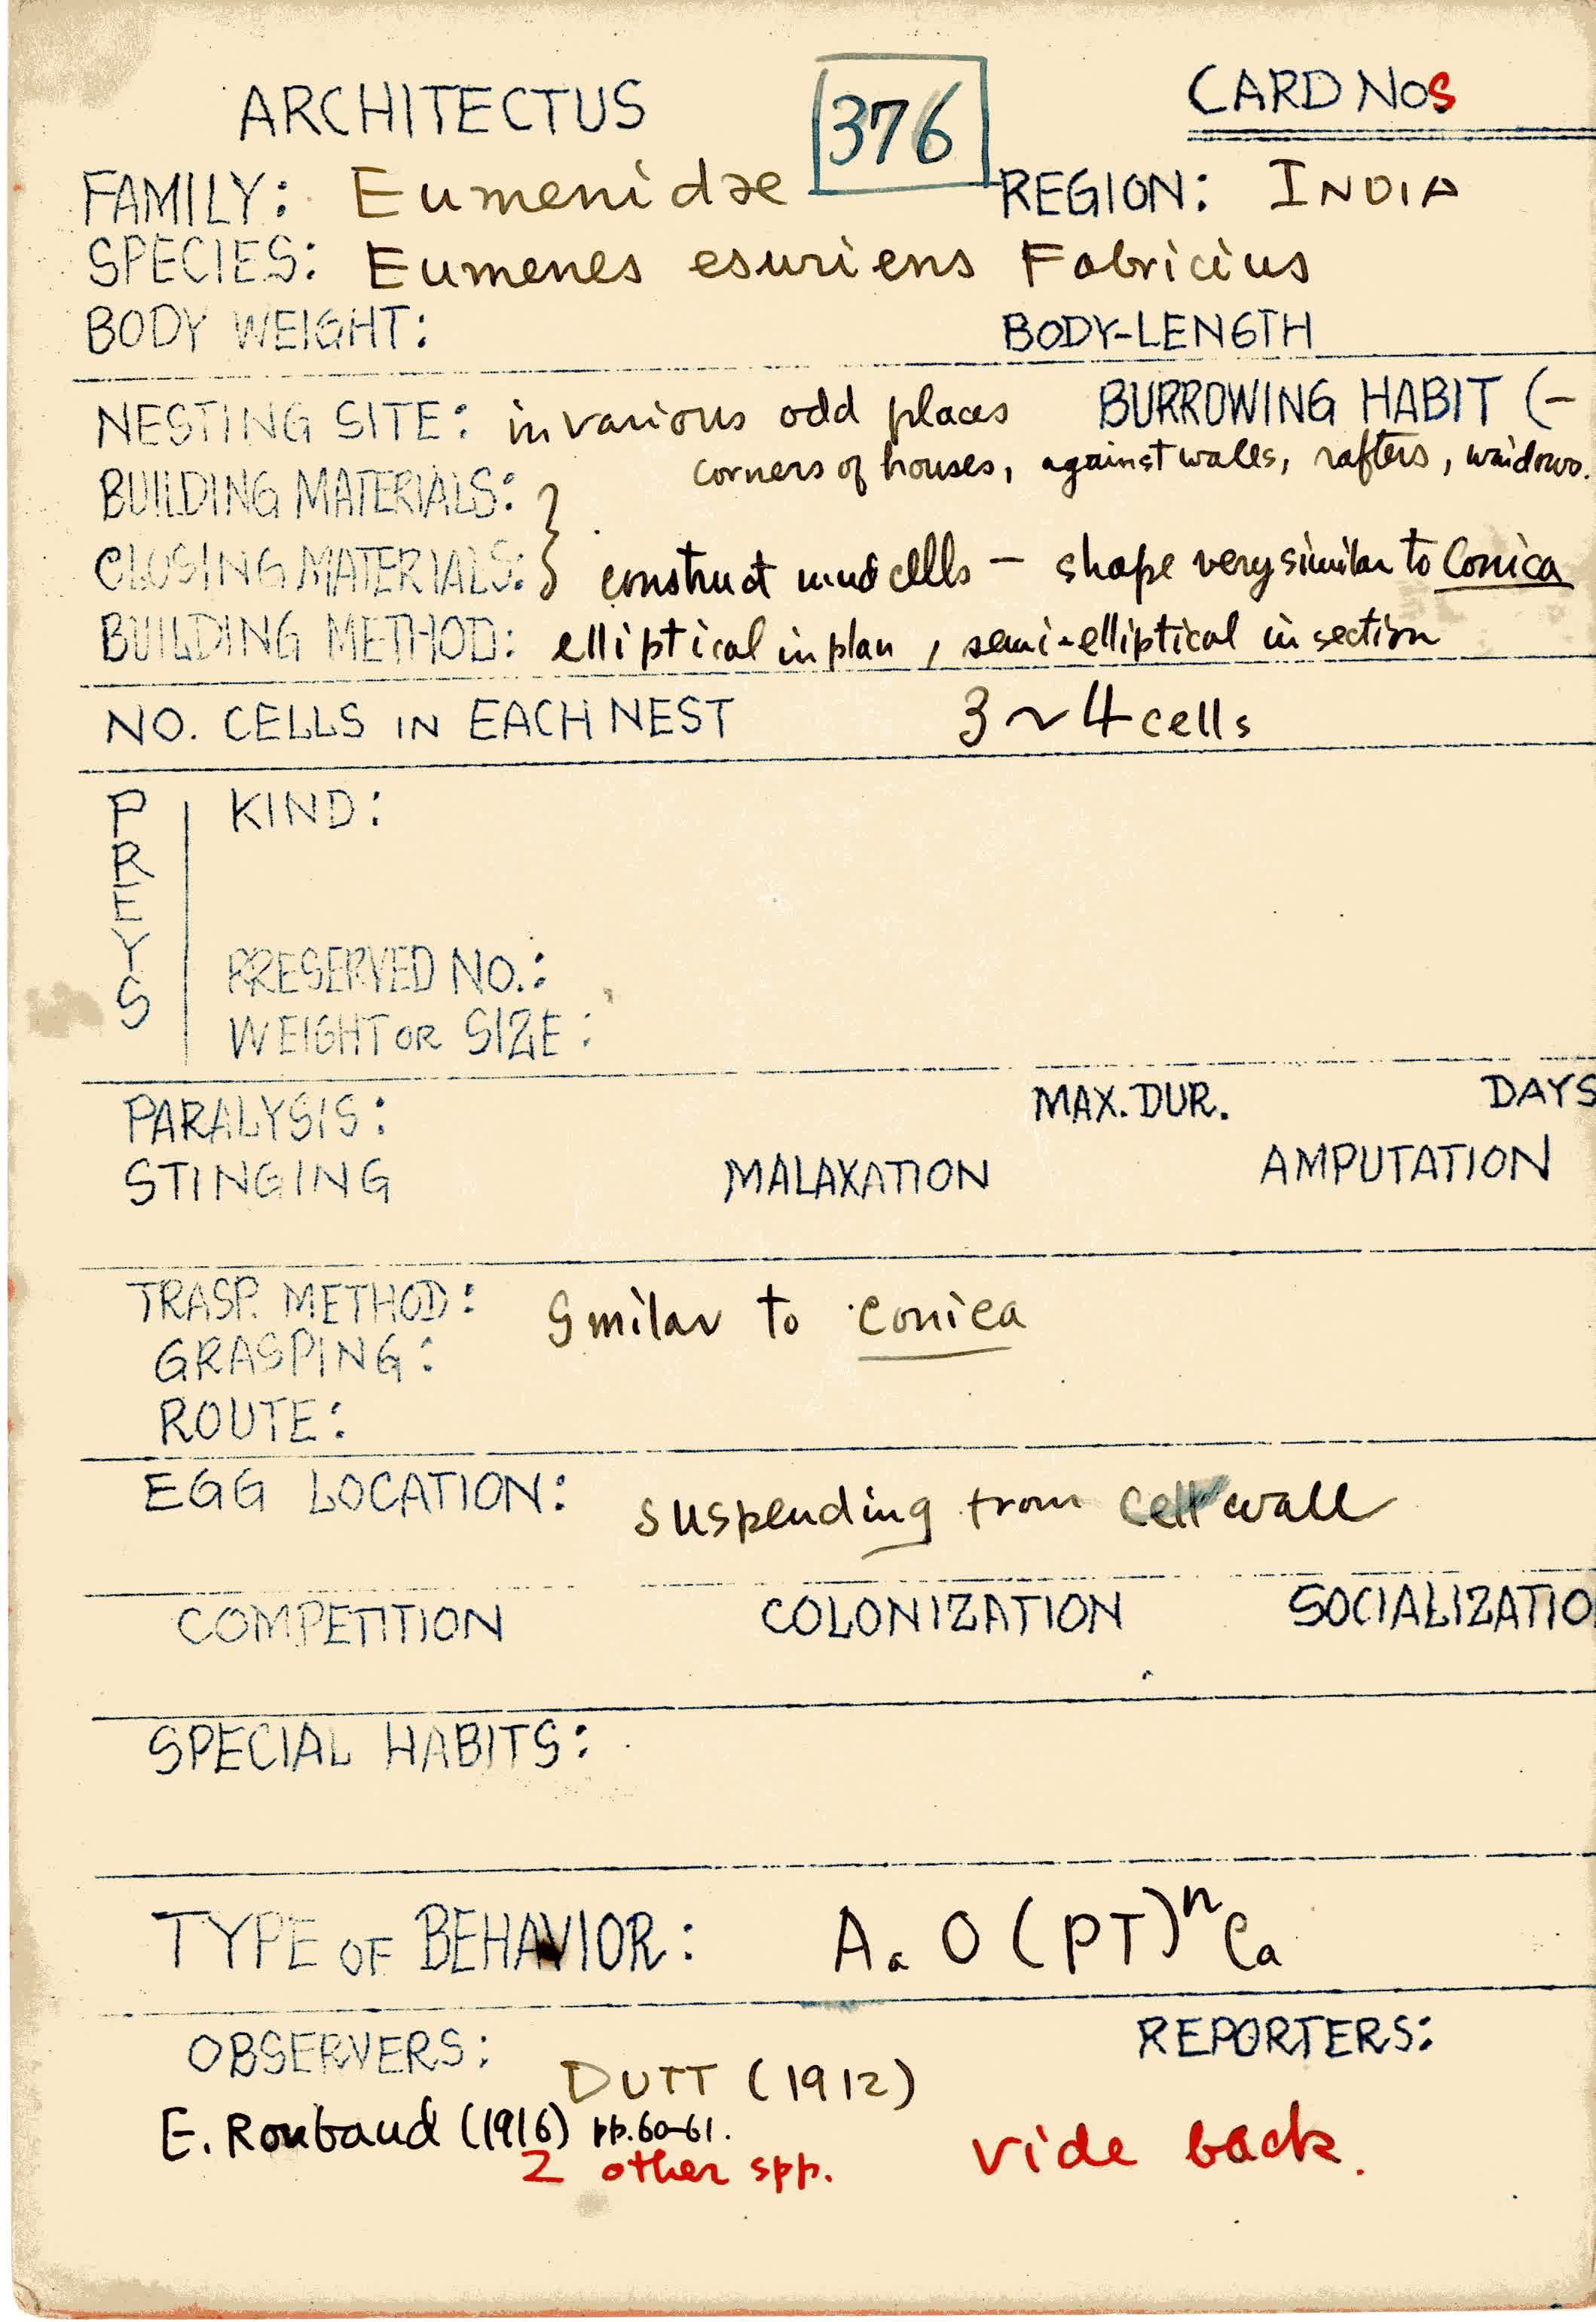 ARCHITECTUS 376 CARD NOS
FAMILY: Eumenidae REGION: INDIA
SPECIES: Eumenes esuriens Fabricius
BODY WEIGHT: BODY-LENGTH
NESTING SITE: in various odd places BURROWING HABIT (-
corners of houses, against walls, rafters, windows.
BUILDING MATERIALS:
CLOSING MATERIALS: } construct mud cells - shape very similar to Conica
BUILDING METHOD: elliptical in plan, semi-elliptical in section
NO. CELLS IN EACH NEST 3~4 cells
PREYS
KIND:
PRESERVED NO.:
WEIGHT OR SIZE:
PARALYSIS: MAX. DUR. DAYS
STINGING MALAXATION AMPUTATION
TRASP. METHOD: Smilar to conica
GRASPING:
ROUTE:
EGG LOCATION: suspending from cell wall
COMPETITION COLONIZATION SOCIALIZATIO
SPECIAL HABITS:
TYPE OF BEHAVIOR: Aa O (PT)ⁿ Ca
OBSERVERS: REPORTERS:
DUTT (1912)
E. Roubaud (1916) pp. 60-61.
2 other spp. vide back.